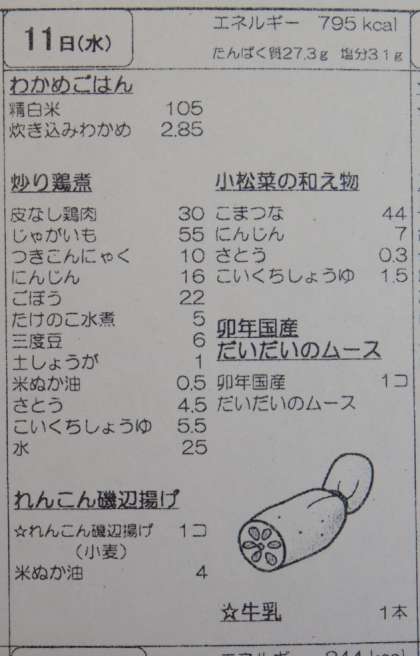 11日(水)
エネルギー 795 kcal
たんぱく質27.3g 塩分3.1g
わかめごはん
精白米 105
炊き込みわかめ 2.85
炒り鶏煮
皮なし鶏肉 30
じゃがいも 55
つきこんにゃく 10
にんじん 16
ごぼう 22
たけのこ水煮 5
三度豆 6
土しょうが 1
米ぬか油 0.5
さとう 4.5
こいくちしょうゆ 5.5
水 25
れんこん磯辺揚げ
☆れんこん磯辺揚げ 1コ
(小麦)
米ぬか油 4
小松菜の和え物
こまつな 44
にんじん 7
さとう 0.3
こいくちしょうゆ 1.5
卯年国産
だいだいのムース
卯年国産 1コ
だいだいのムース
☆牛乳 1本